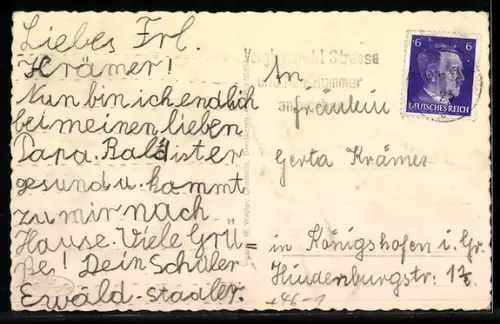 Liebes Frl.
Krämer!
Nun bin ich endlich
bei meinen lieben
Papa. Bald ist er
gesund u. kommt
zu mir nach
Hause. Viele Grü
ße! Dein Schüler
Ewald Stadler.
Vergiß nicht Strasse
und Hausnummer
An
Fräulein
Gerta Krämer
in Königshofen i. Gr.
Hindenburgstr.
6 6
DEUTSCHES REICH